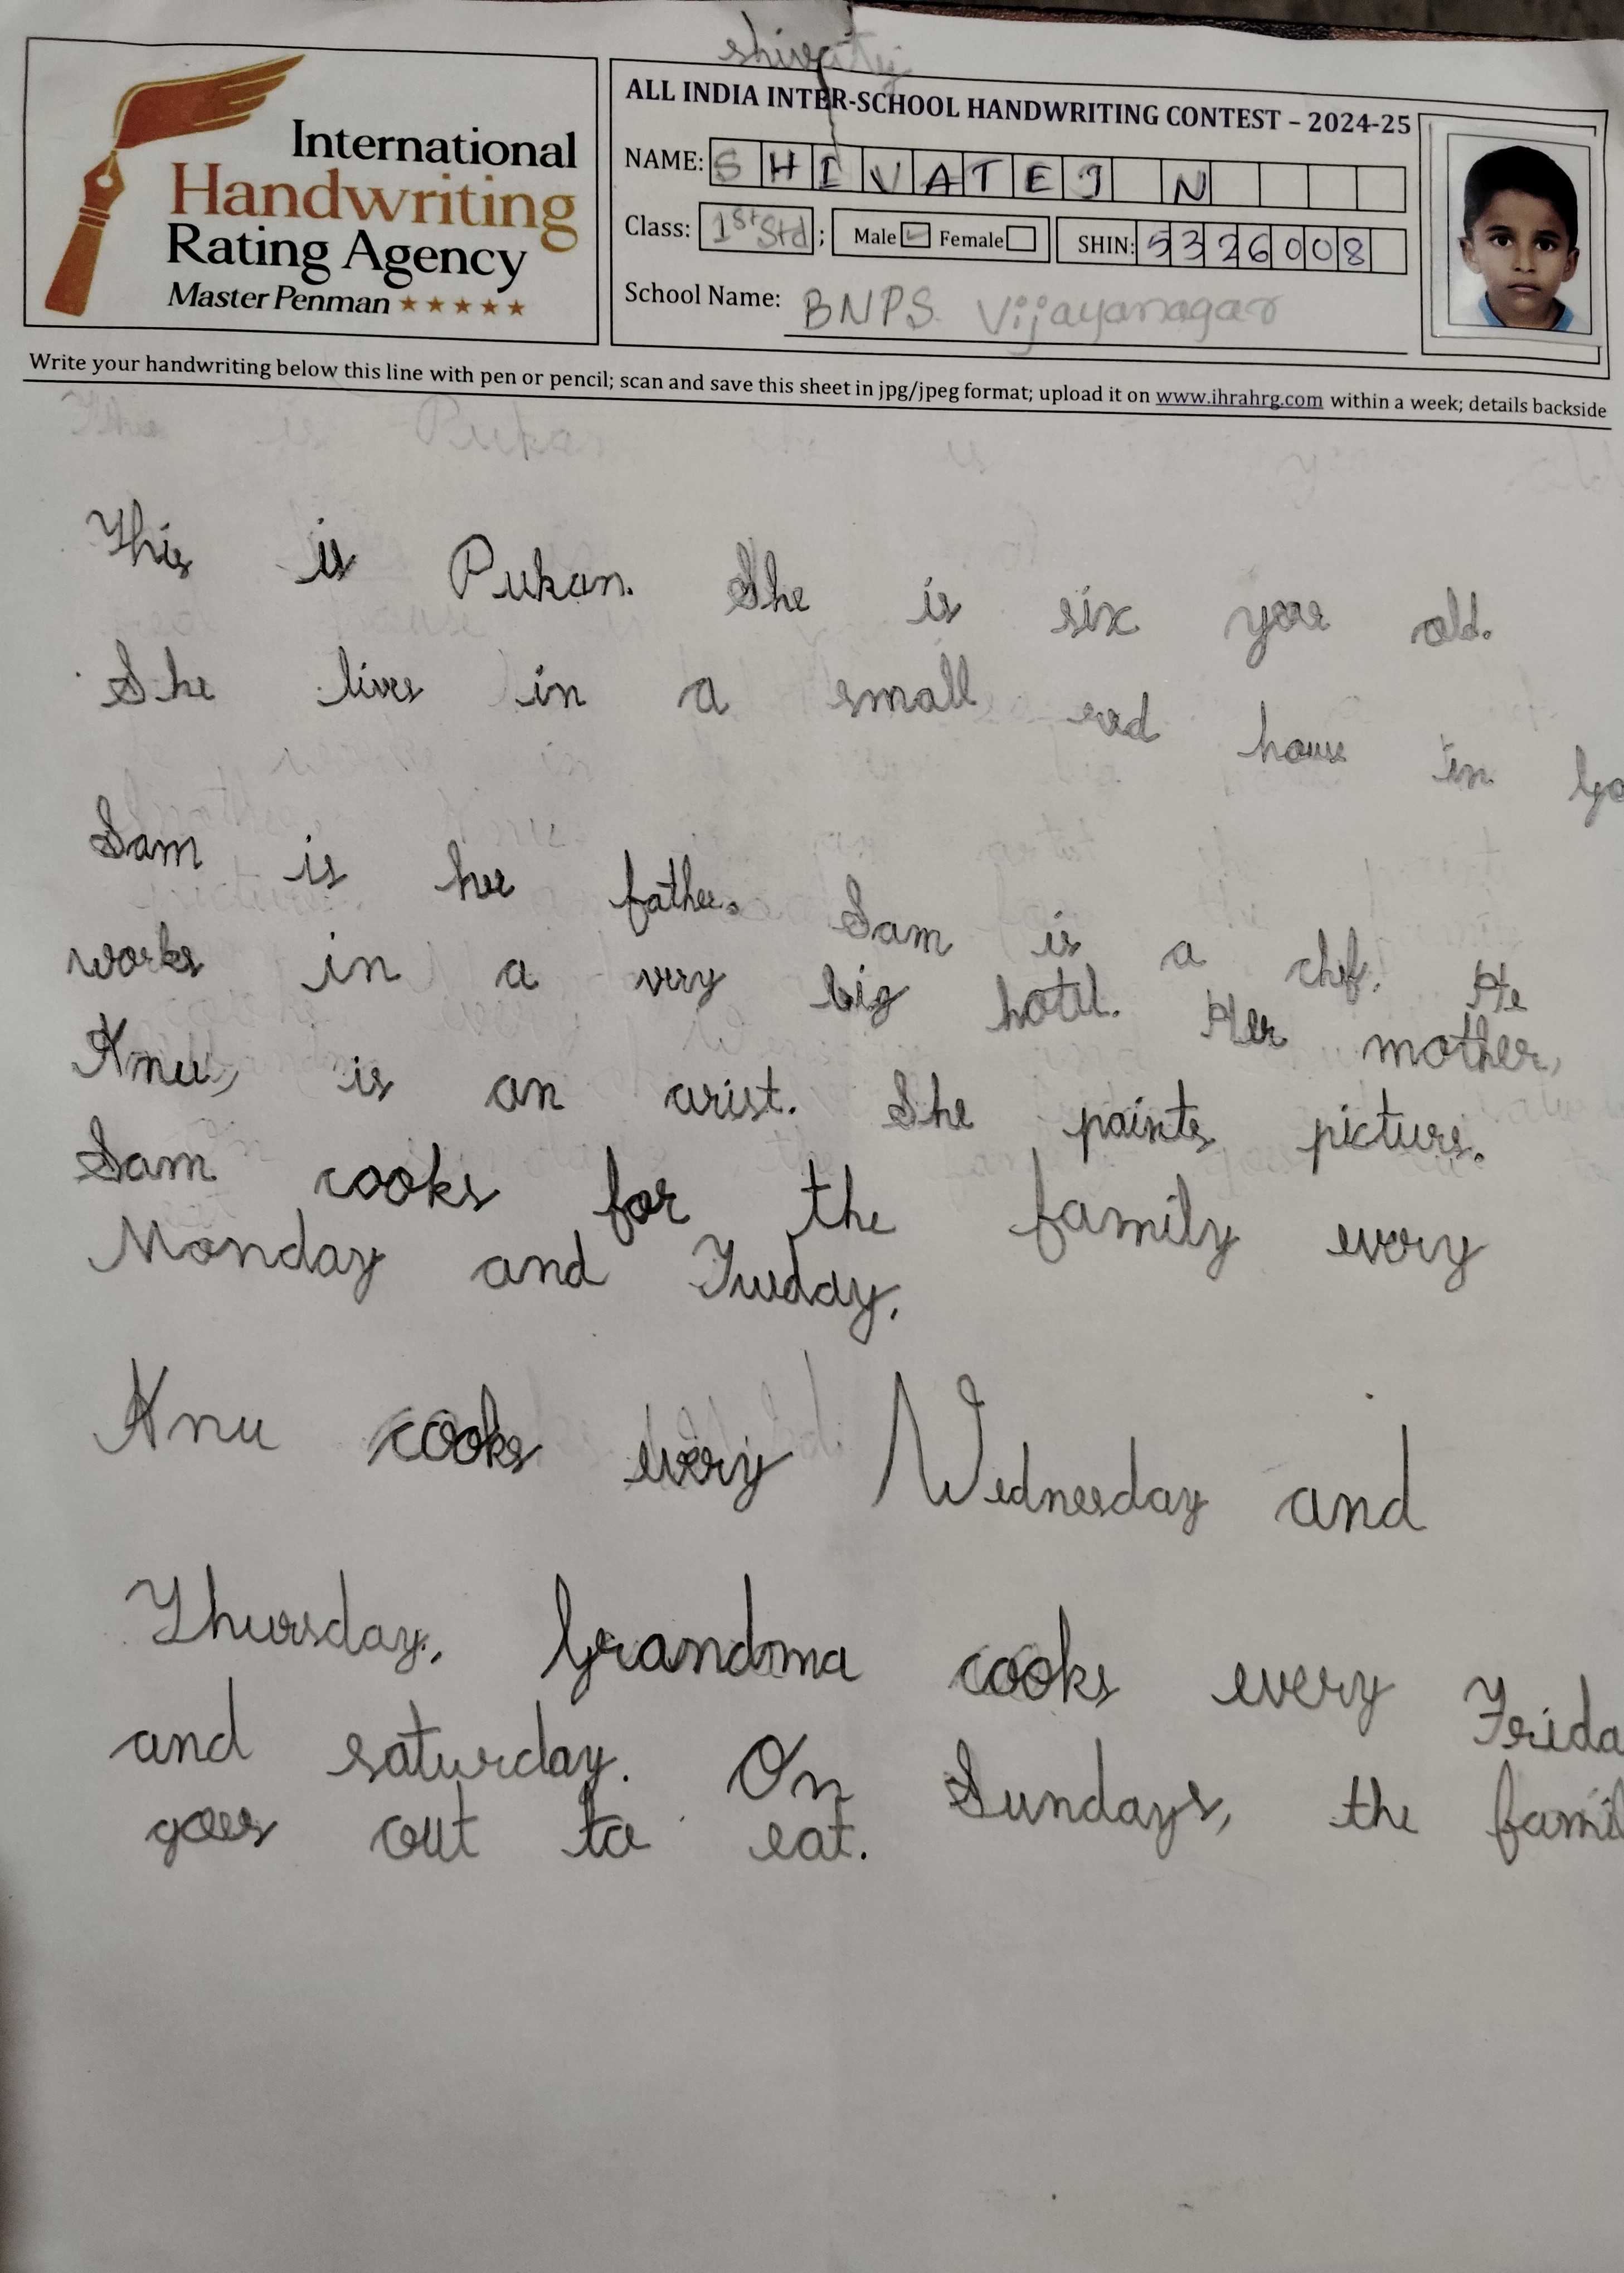 shivatej
International
Handwriting
Rating Agency
Master Penman
ALL INDIA INTER-SCHOOL HANDWRITING CONTEST – 2024-25
NAME: SHIVATEJ N
Class: 1st Std ; Male Female SHIN: 5326008
School Name: BNPS Vijayanagar
Write your handwriting below this line with pen or pencil; scan and save this sheet in jpg/jpeg format; upload it on www.ihrahrg.com within a week; details backside
This is Pukan. She is six old.
She lives in a small red house in
Sam is her father. Sam is a chef. He
works in a very big hotel. Her mother,
Knu, is an arist. She paints picture.
Sam cooks for the family every
Monday and
Knu cooks every Wednesday and
Thursday, Grandma cooks every Frida
and saturday. On Sundays, the famil
goes out to eat.